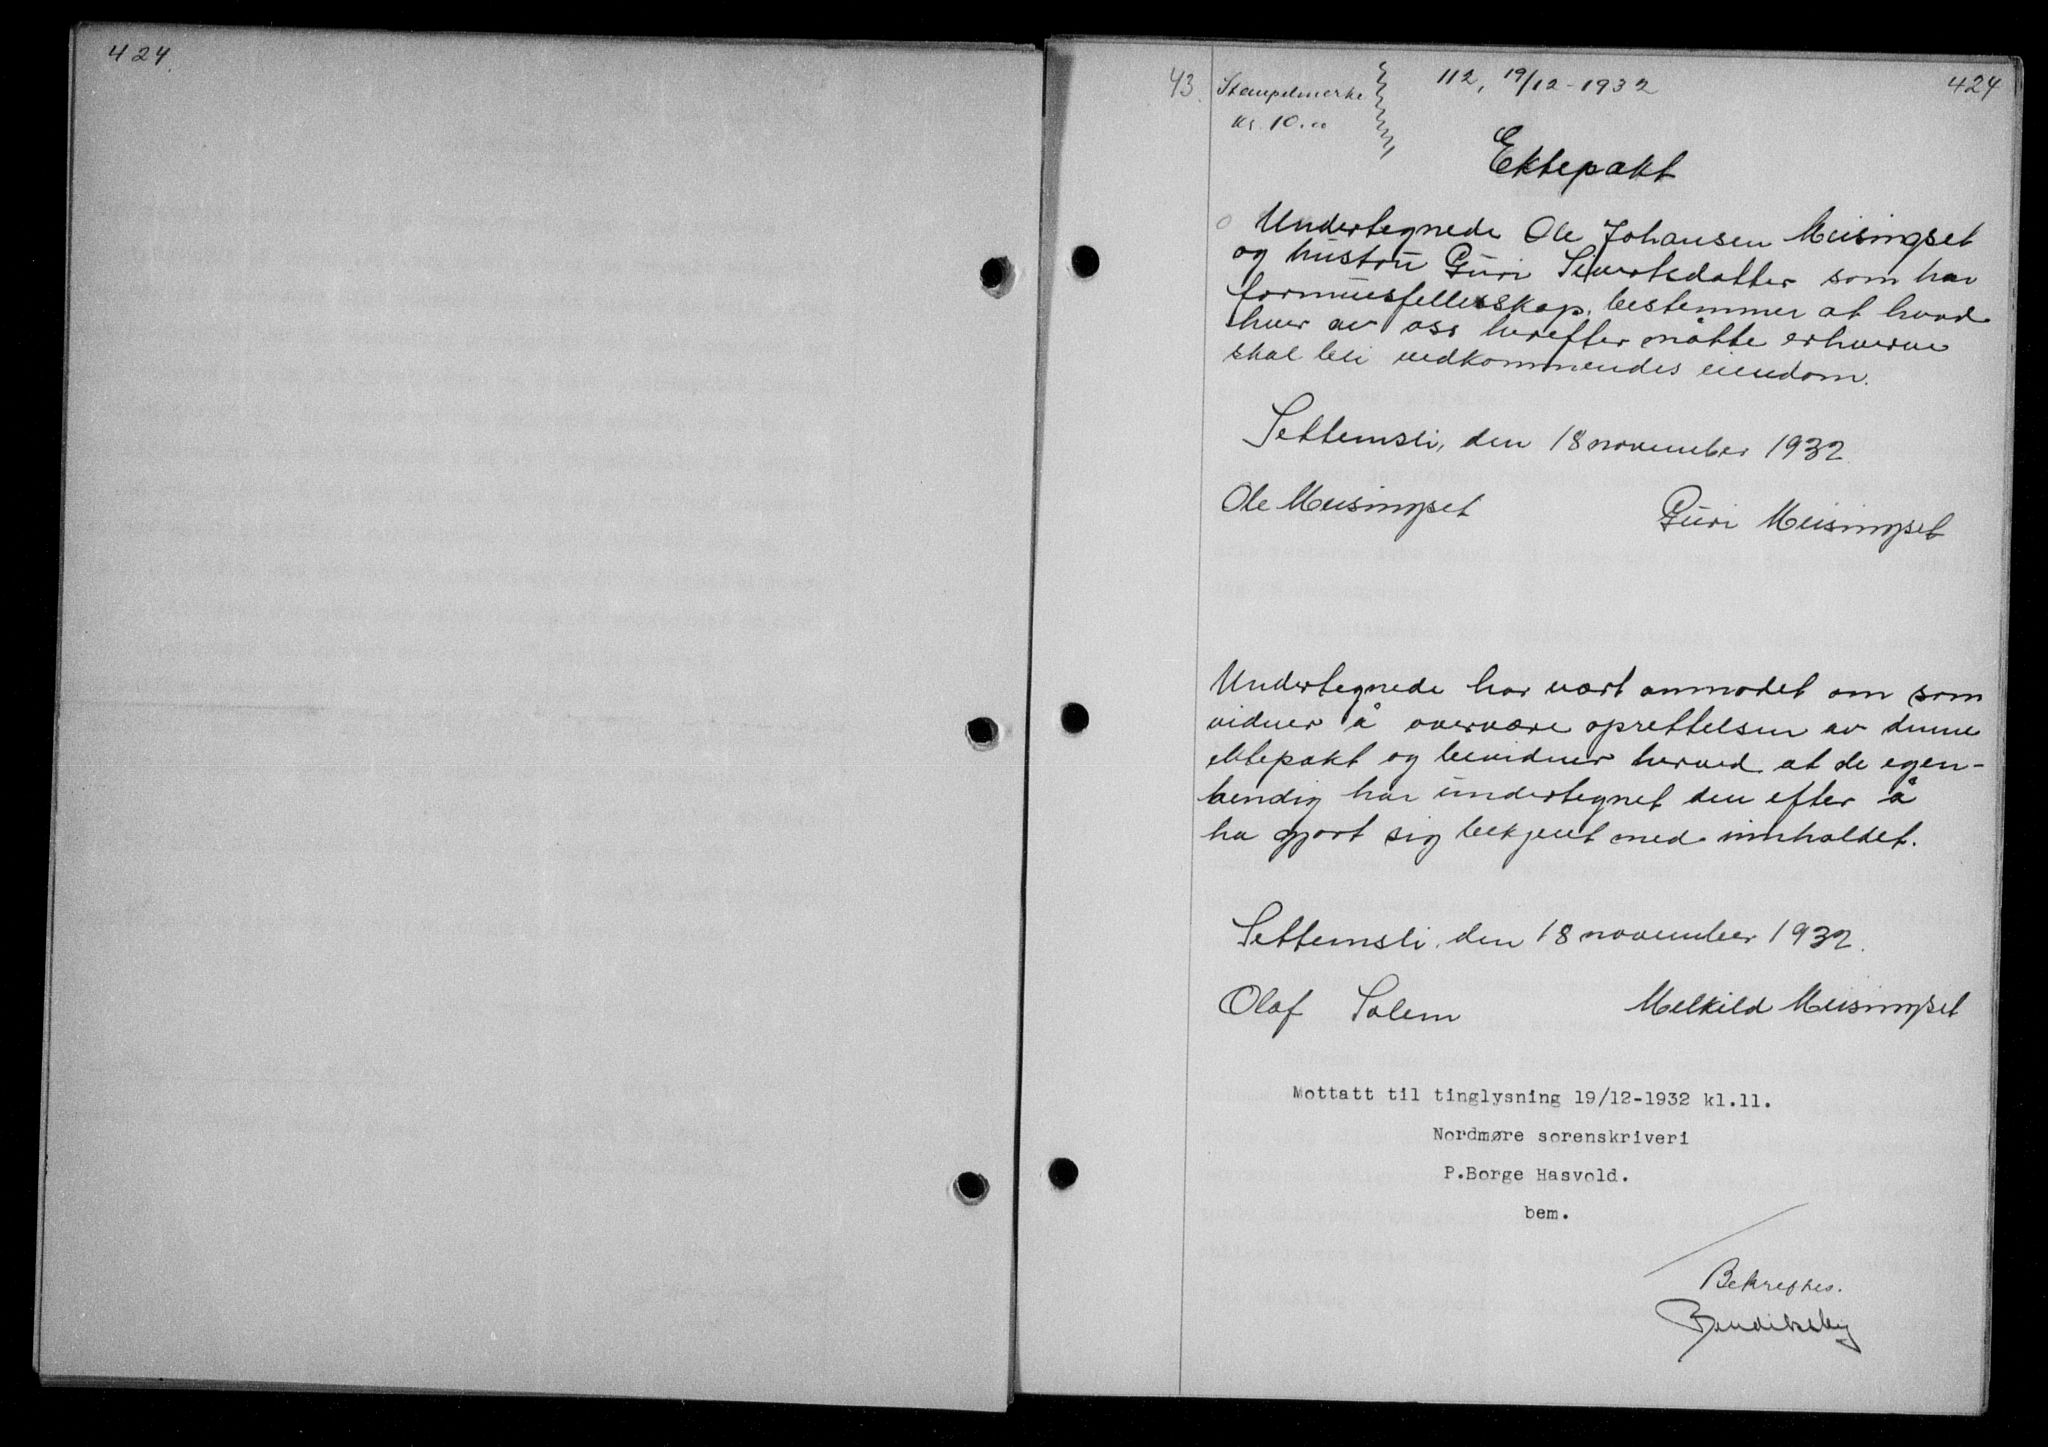 424.
43. Stempelmerke 112, 19/12-1932 424
kr. 10.00
Ektepakt
Undertegnede Ole Johansen Meisingset
og hustru Guri Sivertsdatter som har
formuesfellesskap, bestemmer at hvad
hver av oss herefter måtte erhverve
skal bli vedkommendes eiendom.
Settemsli, den 18 november 1932
Ole Meisingset Guri Meisingset
Undertegnede har vært anmodet om som
vidner å overvære oprettelsen av denne
ektepakt og bevidner herved at de egen-
hendig har undertegnet den efter å
ha gjort sig bekjent med innholdet.
Settemsli, den 18 november 1932.
Olaf Solem Melkild Meisingset
Mottatt til tinglysning 19/12-1932 kl.11.
Nordmøre sorenskriveri
P.Borge Hasvold.
bem.
Bekreftes.
Bendiksby